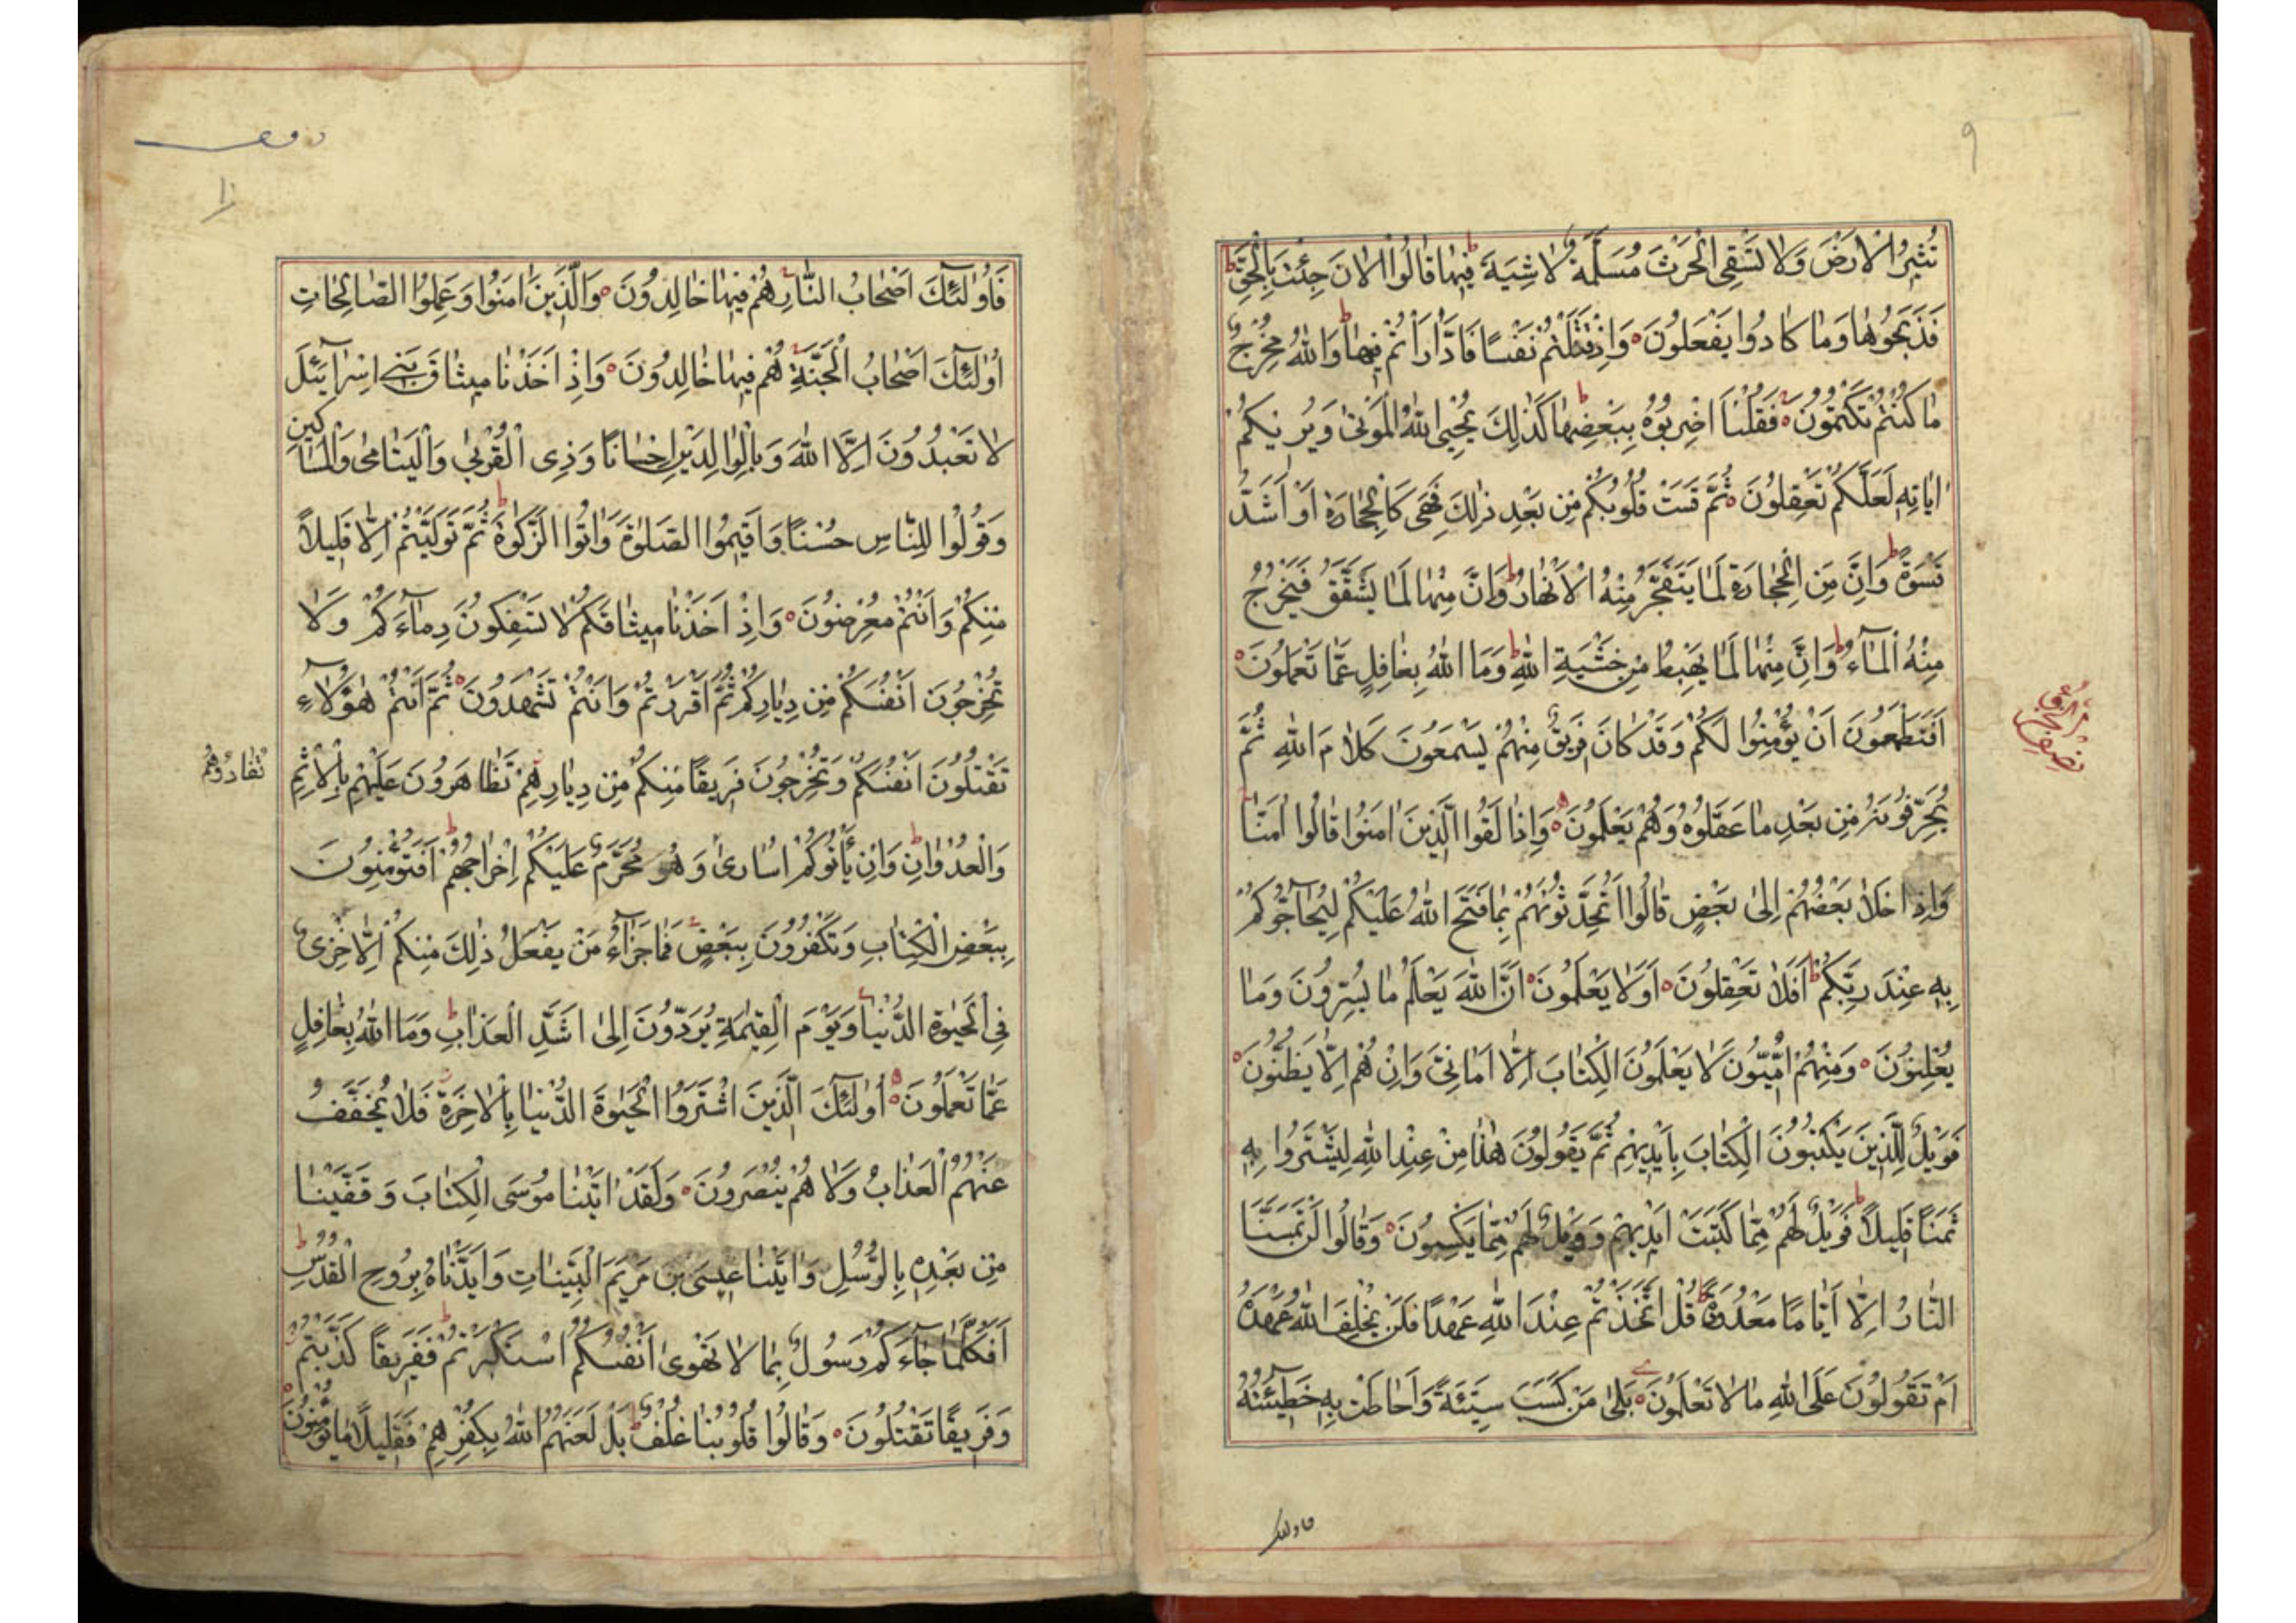 ٩
تُثِيرُ الْاَرْضَ وَلَا تَسْقِى الْحَرْثَ مُسَلَّمَةٌ لَاشِيَةَ فِيهَا قَالُوا الْاٰنَ جِئْتَ بِالْحَقِّ
فَذَبَحُوهَا وَمَا كَادُوا يَفْعَلُونَ وَاِذْ قَتَلْتُمْ نَفْسًا فَادَّارَاْتُمْ فِيهَا وَاللّٰهُ مُخْرِجٌ
مَا كُنْتُمْ تَكْتُمُونَ فَقُلْنَا اضْرِبُوهُ بِبَعْضِهَا كَذٰلِكَ يُحْيِى اللّٰهُ الْمَوْتٰى وَيُرِيكُمْ
اٰيَاتِهِ لَعَلَّكُمْ تَعْقِلُونَ ثُمَّ قَسَتْ قُلُوبُكُمْ مِنْ بَعْدِ ذٰلِكَ فَهِىَ كَالْحِجَارَةِ اَوْ اَشَدُّ
قَسْوَةً وَاِنَّ مِنَ الْحِجَارَةِ لَمَا يَتَفَجَّرُ مِنْهُ الْاَنْهَارُ وَاِنَّ مِنْهَا لَمَا يَشَّقَّقُ فَيَخْرُجُ
مِنْهُ الْمَآءُ وَاِنَّ مِنْهَا لَمَا يَهْبِطُ مِنْ خَشْيَةِ اللّٰهِ وَمَا اللّٰهُ بِغَافِلٍ عَمَّا تَعْمَلُونَ
اَفَتَطْمَعُونَ اَنْ يُؤْمِنُوا لَكُمْ وَقَدْ كَانَ فَرِيقٌ مِنْهُمْ يَسْمَعُونَ كَلَامَ اللّٰهِ ثُمَّ
يُحَرِّفُونَهُ مِنْ بَعْدِ مَا عَقَلُوهُ وَهُمْ يَعْلَمُونَ وَاِذَا لَقُوا الَّذِينَ اٰمَنُوا قَالُوا اٰمَنَّا
وَاِذَا خَلَا بَعْضُهُمْ اِلٰى بَعْضٍ قَالُوا اَتُحَدِّثُونَهُمْ بِمَا فَتَحَ اللّٰهُ عَلَيْكُمْ لِيُحَآجُّوكُمْ
بِهِ عِنْدَ رَبِّكُمْ اَفَلَا تَعْقِلُونَ اَوَلَا يَعْلَمُونَ اَنَّ اللّٰهَ يَعْلَمُ مَا يُسِرُّونَ وَمَا
يُعْلِنُونَ وَمِنْهُمْ اُمِّيُّونَ لَا يَعْلَمُونَ الْكِتَابَ اِلَّا اَمَانِىَّ وَاِنْ هُمْ اِلَّا يَظُنُّونَ
فَوَيْلٌ لِلَّذِينَ يَكْتُبُونَ الْكِتَابَ بِاَيْدِيهِمْ ثُمَّ يَقُولُونَ هٰذَا مِنْ عِنْدِ اللّٰهِ لِيَشْتَرُوا بِهِ
ثَمَنًا قَلِيلًا فَوَيْلٌ لَهُمْ مِمَّا كَتَبَتْ اَيْدِيهِمْ وَوَيْلٌ لَهُمْ مِمَّا يَكْسِبُونَ وَقَالُوا لَنْ تَمَسَّنَا
النَّارُ اِلَّا اَيَّامًا مَعْدُودَةً قُلْ اَتَّخَذْتُمْ عِنْدَ اللّٰهِ عَهْدًا فَلَنْ يُخْلِفَ اللّٰهُ عَهْدَهُ
اَمْ تَقُولُونَ عَلَى اللّٰهِ مَا لَا تَعْلَمُونَ بَلٰى مَنْ كَسَبَ سَيِّئَةً وَاَحَاطَتْ بِهِ خَطِيئَتُهُ
فاولئك
فَاُولٰئِكَ اَصْحَابُ النَّارِ هُمْ فِيهَا خَالِدُونَ وَالَّذِينَ اٰمَنُوا وَعَمِلُوا الصَّالِحَاتِ
اُولٰئِكَ اَصْحَابُ الْجَنَّةِ هُمْ فِيهَا خَالِدُونَ وَاِذْ اَخَذْنَا مِيثَاقَ بَنِى اِسْرَآئِيلَ
لَا تَعْبُدُونَ اِلَّا اللّٰهَ وَبِالْوَالِدَيْنِ اِحْسَانًا وَذِى الْقُرْبٰى وَالْيَتَامٰى وَالْمَسَاكِينِ
وَقُولُوا لِلنَّاسِ حُسْنًا وَاَقِيمُوا الصَّلٰوةَ وَاٰتُوا الزَّكٰوةَ ثُمَّ تَوَلَّيْتُمْ اِلَّا قَلِيلًا
مِنْكُمْ وَاَنْتُمْ مُعْرِضُونَ وَاِذْ اَخَذْنَا مِيثَاقَكُمْ لَا تَسْفِكُونَ دِمَآءَكُمْ وَلَا
تُخْرِجُونَ اَنْفُسَكُمْ مِنْ دِيَارِكُمْ ثُمَّ اَقْرَرْتُمْ وَاَنْتُمْ تَشْهَدُونَ ثُمَّ اَنْتُمْ هٰؤُلَآءِ
تَقْتُلُونَ اَنْفُسَكُمْ وَتُخْرِجُونَ فَرِيقًا مِنْكُمْ مِنْ دِيَارِهِمْ تَظَاهَرُونَ عَلَيْهِمْ بِالْاِثْمِ
وَالْعُدْوَانِ وَاِنْ يَاْتُوكُمْ اُسَارٰى وَهُوَ مُحَرَّمٌ عَلَيْكُمْ اِخْرَاجُهُمْ اَفَتُؤْمِنُونَ
تُفَادُوهُمْ
بِبَعْضِ الْكِتَابِ وَتَكْفُرُونَ بِبَعْضٍ فَمَا جَزَآءُ مَنْ يَفْعَلُ ذٰلِكَ مِنْكُمْ اِلَّا خِزْىٌ
فِى الْحَيٰوةِ الدُّنْيَا وَيَوْمَ الْقِيٰمَةِ يُرَدُّونَ اِلٰى اَشَدِّ الْعَذَابِ وَمَا اللّٰهُ بِغَافِلٍ
عَمَّا تَعْمَلُونَ اُولٰئِكَ الَّذِينَ اشْتَرَوُا الْحَيٰوةَ الدُّنْيَا بِالْاٰخِرَةِ فَلَا يُخَفَّفُ
عَنْهُمُ الْعَذَابُ وَلَا هُمْ يُنْصَرُونَ وَلَقَدْ اٰتَيْنَا مُوسَى الْكِتَابَ وَقَفَّيْنَا
مِنْ بَعْدِهِ بِالرُّسُلِ وَاٰتَيْنَا عِيسَى بْنَ مَرْيَمَ الْبَيِّنَاتِ وَاَيَّدْنَاهُ بِرُوحِ الْقُدُسِ
اَفَكُلَّمَا جَآءَكُمْ رَسُولٌ بِمَا لَا تَهْوٰى اَنْفُسُكُمُ اسْتَكْبَرْتُمْ فَفَرِيقًا كَذَّبْتُمْ
وَفَرِيقًا تَقْتُلُونَ وَقَالُوا قُلُوبُنَا غُلْفٌ بَلْ لَعَنَهُمُ اللّٰهُ بِكُفْرِهِمْ فَقَلِيلًا مَا يُؤْمِنُونَ